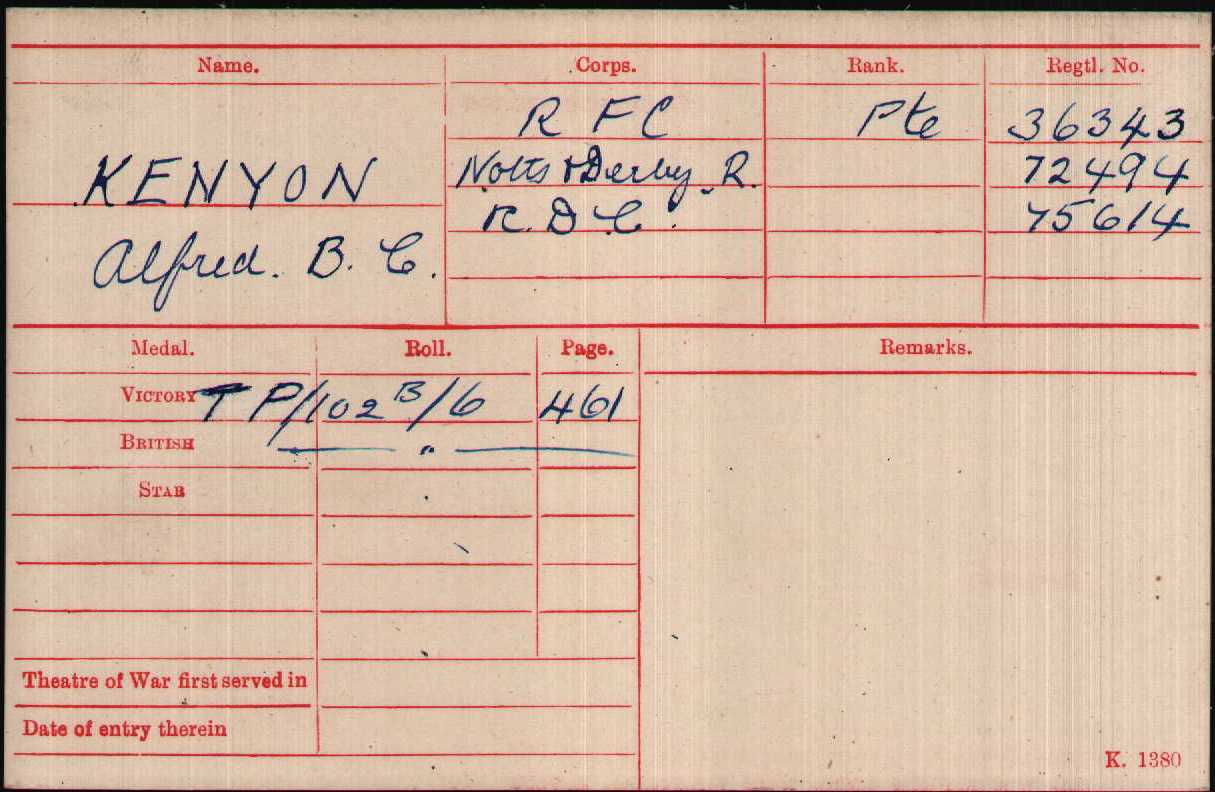 Name. Corps. Rank. Regtl. No.
R F C Pte 36343
KENYON Notts & Derby. R. 72494
R. D. C. 75614
Alfred. B. C.
Medal. Roll. Page. Remarks.
VICTORY TP/102B/6 461
BRITISH — " —
STAR
Theatre of War first served in
Date of entry therein
K. 1380